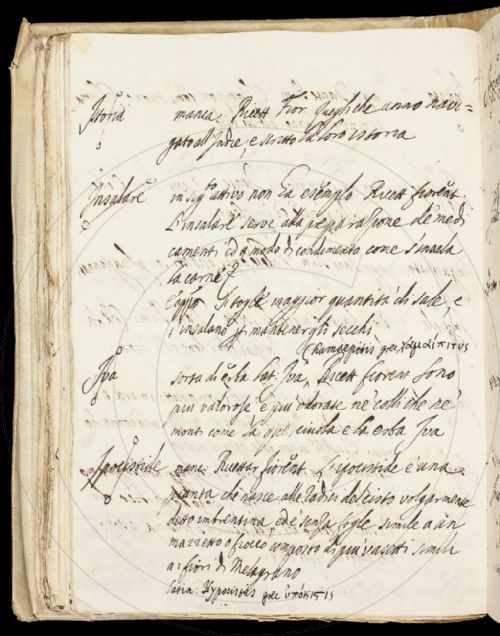 Istoria manca. Ricett Fior Quegli che anno navi=
gato all'Indie, e scritto la loro istoria
Insalare in sigto attivo non ha esemplo Ricett fiorent.
L'insalare serve alla preparazione de medi
camenti ed a modo di condimento come s'insala
la carne
E appo Si toglie maggior quantità di sale, e
s'insalano p mantenergli secchi
Chamaepitis grec χαμαίπιτυς
Iva sorta di erba lat. Iva, Ricett fiorent sono
più valorose e più odorate ne' colli che ne'
monti come la e la erba Iva
Ipocistide manc. Ricettar fiorent L'ipocistide è una
pianta che nasce alle radici del cisto volgarmente
detto imbrentina, ed è senza foglie simile a un
mazzetto o fiocco composto di più vasetti simili
a' fiori di Melagrano
latin: Hypocistis grec ὑπόκιστις